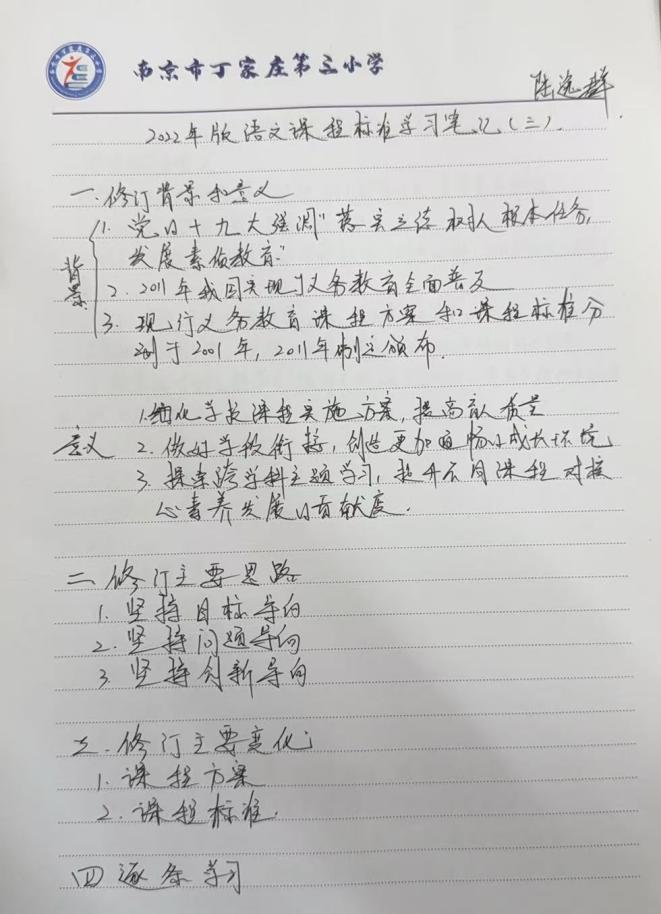 南京市丁家庄第三小学
陆逸群
2022年版语文课程标准学习笔记(三).
一.修订背景和意义
背景
1. 党的十九大强调"落实立德树人根本任务,
发展素质教育."
2. 2011年我国实现了义务教育全面普及
3. 现行义务教育课程方案和课程标准分
别于2001年,2011年制定颁布.
意义
1.细化学校课程实施方案,提高育人质量
2. 做好学段衔接,创造更加通畅的成长环境
3. 探索跨学科主题学习,提升不同课程对核
心素养发展的贡献度.
二 修订主要思路
1. 坚持目标导向
2. 坚持问题导向
3. 坚持创新导向
三.修订主要变化
1. 课程方案
2. 课程标准.
四 逐条学习